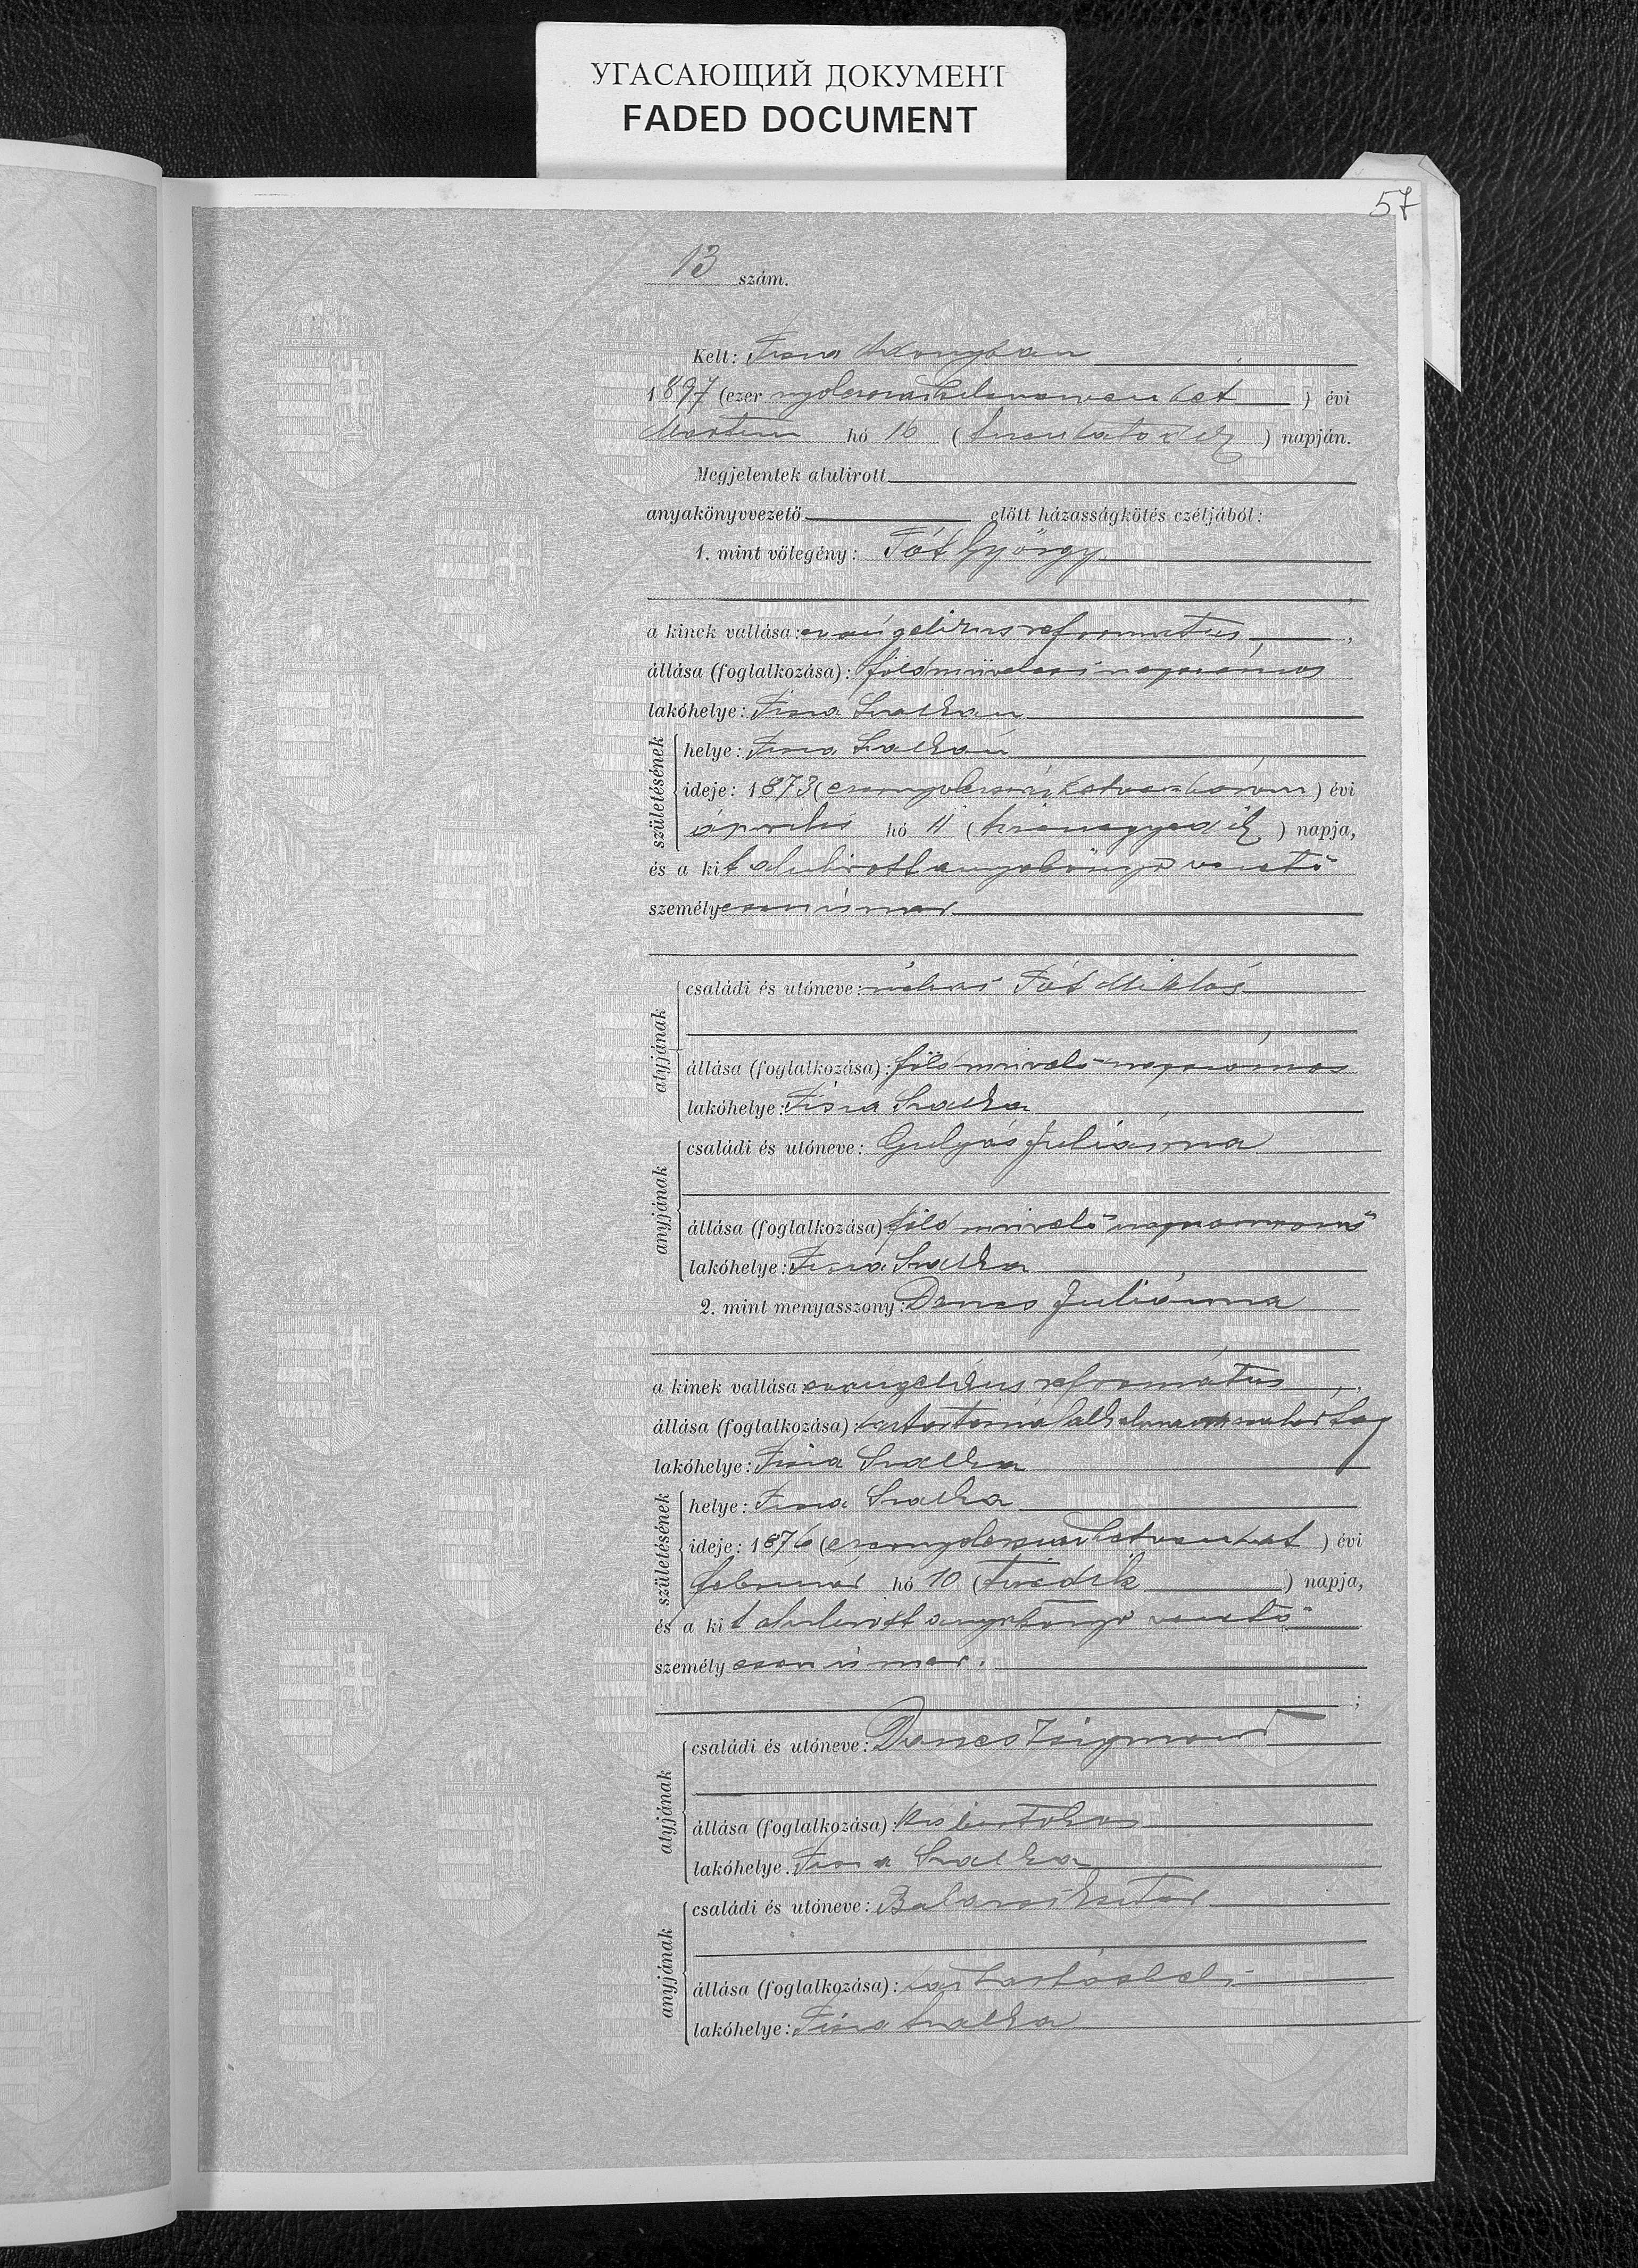 УГАСАЮЩИЙ ДОКУМЕНТ
FADED DOCUMENT
57
13 szám.
Kelt: Tisza Adonyban
1897 (ezer nyolczszázkilenczvenhét) évi
Martius hó 16 (tizenhatodik) napján.
Megjelentek alulirott
anyakönyvvezető előtt házasságkötés czéljából:
1. mint vőlegény: Tót György
a kinek vallása: evangelikus reformatus,
állása (foglalkozása): földmüvelesi napszámos
lakóhelye: Tisza Szalkán
születésének
helye: Tisza Szalkán
ideje: 1873 (ezernyolczszázhetvenhárom) évi
április hó 11 (tizenegyedik) napja,
és a kit alulirott anyakönyvvezető
személyesen ismer
atyjának
családi és utóneve: néhai Tót Miklós
állása (foglalkozása): földmivelö napszámos
lakóhelye: Tisza Szalka
anyjának
családi és utóneve: Gulyás Juliánna
állása (foglalkozása): föld mivelö
lakóhelye: Tisza Szalka
2. mint menyasszony: Dancs Juliánna
a kinek vallása: evangelikus református,
állása (foglalkozása):
lakóhelye: Tisza Szalka
születésének
helye: Tisza Szalka
ideje: 1876 (ezernyolczszázhetvenhat) évi
februar hó 10 (tizedik) napja,
és a kit alulirott anyakönyvvezető
személyesen ismer.
;
atyjának
családi és utóneve: Dancs Zsigmond
állása (foglalkozása): kis birtokos
lakóhelye: Tisza Szalka
anyjának
családi és utóneve: Eszter
állása (foglalkozása): háztartásbeli
lakóhelye: Tisza Szalka